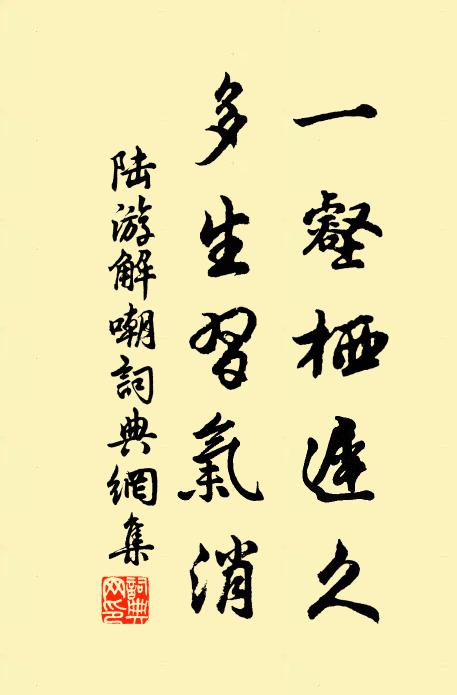 一壑栖遲久
多生習氣消
陸游解嘲詞典網集
詞典網印